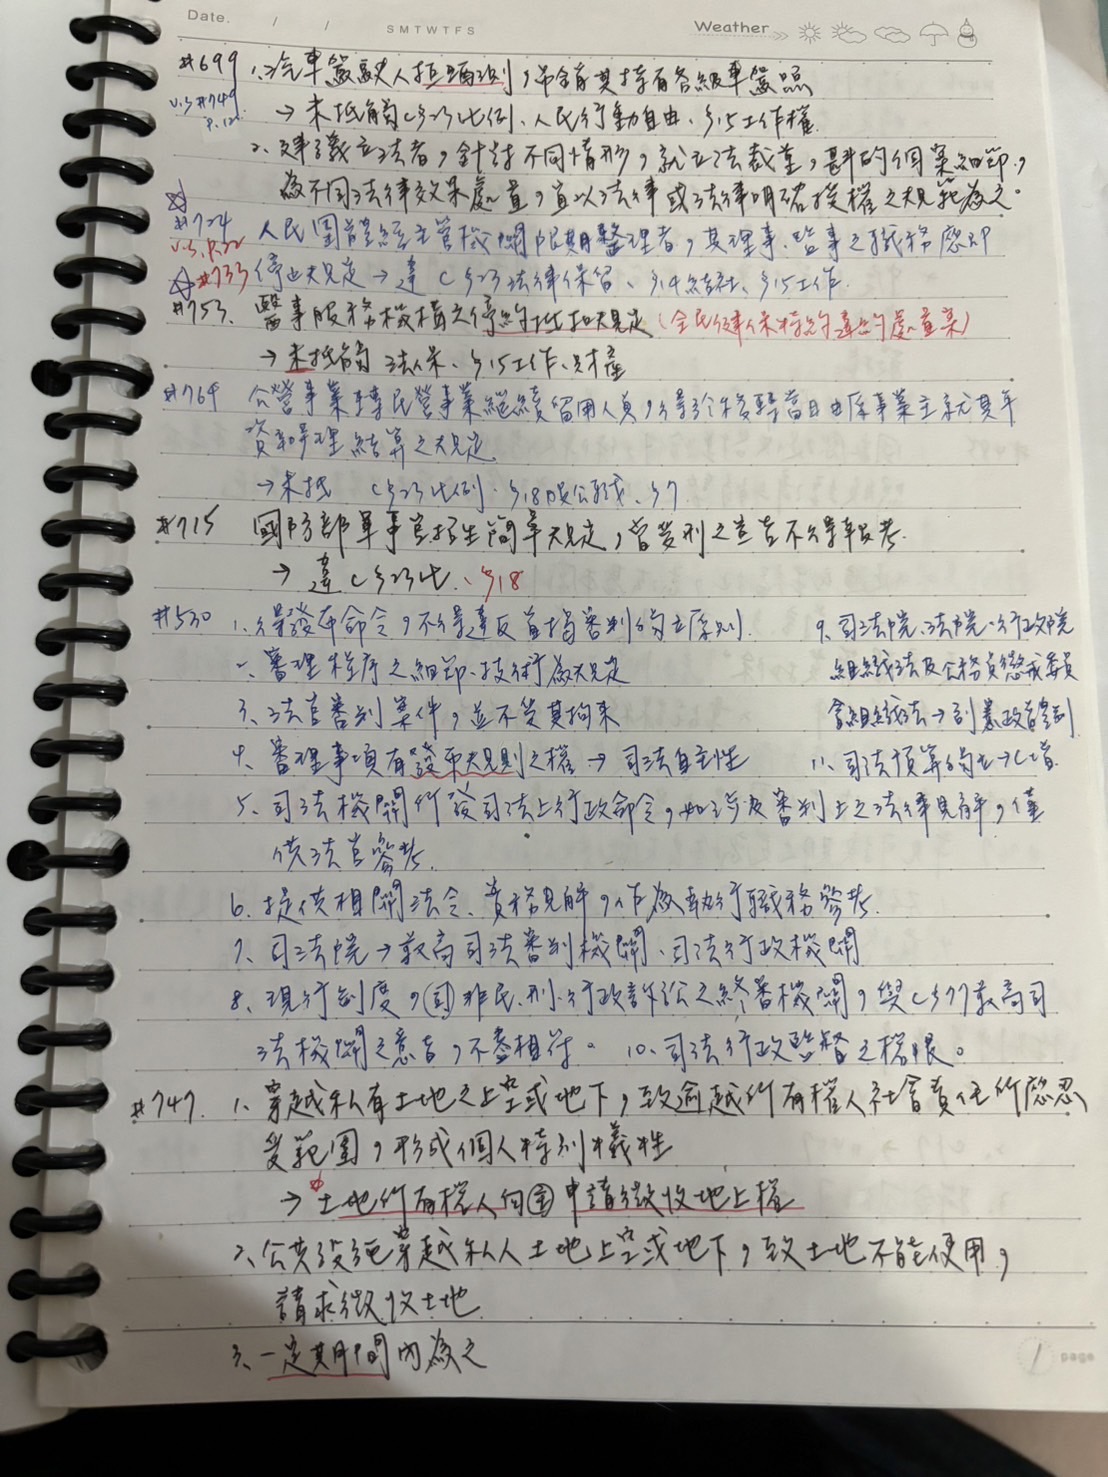 Date. / / SMTWTFS Weather
#699 1. 汽車駕駛人拒酒測，吊銷其持有各級車駕照
v.s #749 P.12
→ 未抵觸C§23比例、人民行動自由、§15工作權
2. 建議立法者，針對不同情形，就立法裁量，斟酌個案細節，
為不同法律效果處置，宜以法律或法律明確授權之規範為之。
#724 人民團體經主管機關限期整理者，其理事、監事之職務應即
v.s. P.22
#733 停止規定→違C§23法律保留、§14結社、§15工作.
#753. 醫事服務機構之停約抵扣規定(全民健保特約違約處置案)
→ 未抵觸 法保、§15工作、財產
#764 公營事業移轉民營事業繼續留用人員，得於移轉當日由原事業主就其年
資辦理結算之規定
→未抵 C§23比例、§18服公職、§7
#715 國防部軍事官招生簡章規定，曾受刑之宣告不得報考.
→ 違C§23比、§18
#530 1. 得發布命令，不得違反首揭審判獨立原則.
2. 審理程序之細節、技術為規定
3. 法官審判案件，並不受其拘束
4. 審理事項有發布規則之權→司法自主性
5. 司法機關所發司法上行政命令，如涉及審判上之法律見解，僅
供法官參考.
6. 提供相關法令、實務見解，作為執行職務參考.
7. 司法院→最高司法審判機關、司法行政機關
8. 現行制度，㊂非民、刑、行政訴訟之終審機關，與C§77最高司
法機關之意旨，不盡相符。 10. 司法行政監督之權限。
9. 司法院、法院、行政院
組織法及公務員懲戒委員
會組織法→
11. 司法預算獨立→C旨.
#747. 1. 穿越私有土地之上空或地下，致逾越所有權人社會責任所應忍
受範圍，形成個人特別犧牲
→土地所有權人向主申請徵收地上權
2. 公共設施穿越私人土地上空或地下，致土地不能使用，
請求徵收土地
3. 一定期間內為之
1 page